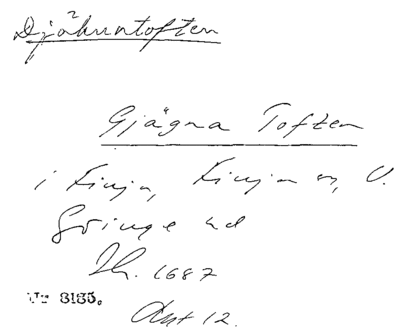 Djäkentoften
Gjägna Toften
i Finja, Finja sn, V.
Göinge hd
Jb. 1687
Vr 3135.
Ant 12.